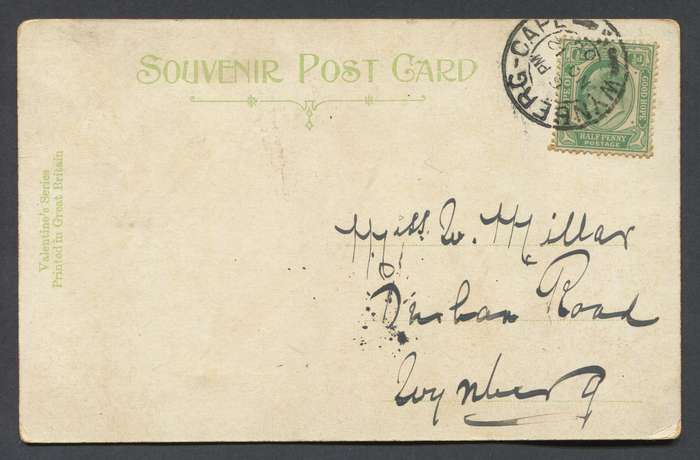 SOUVENIR POST CARD
WYNBERG-CAPE
PM
CAPE OF GOOD HOPE
HALF PENNY
POSTAGE
Valentine's Series
Printed in Great Britain
Miss W. Millar
Durban Road
Wynberg